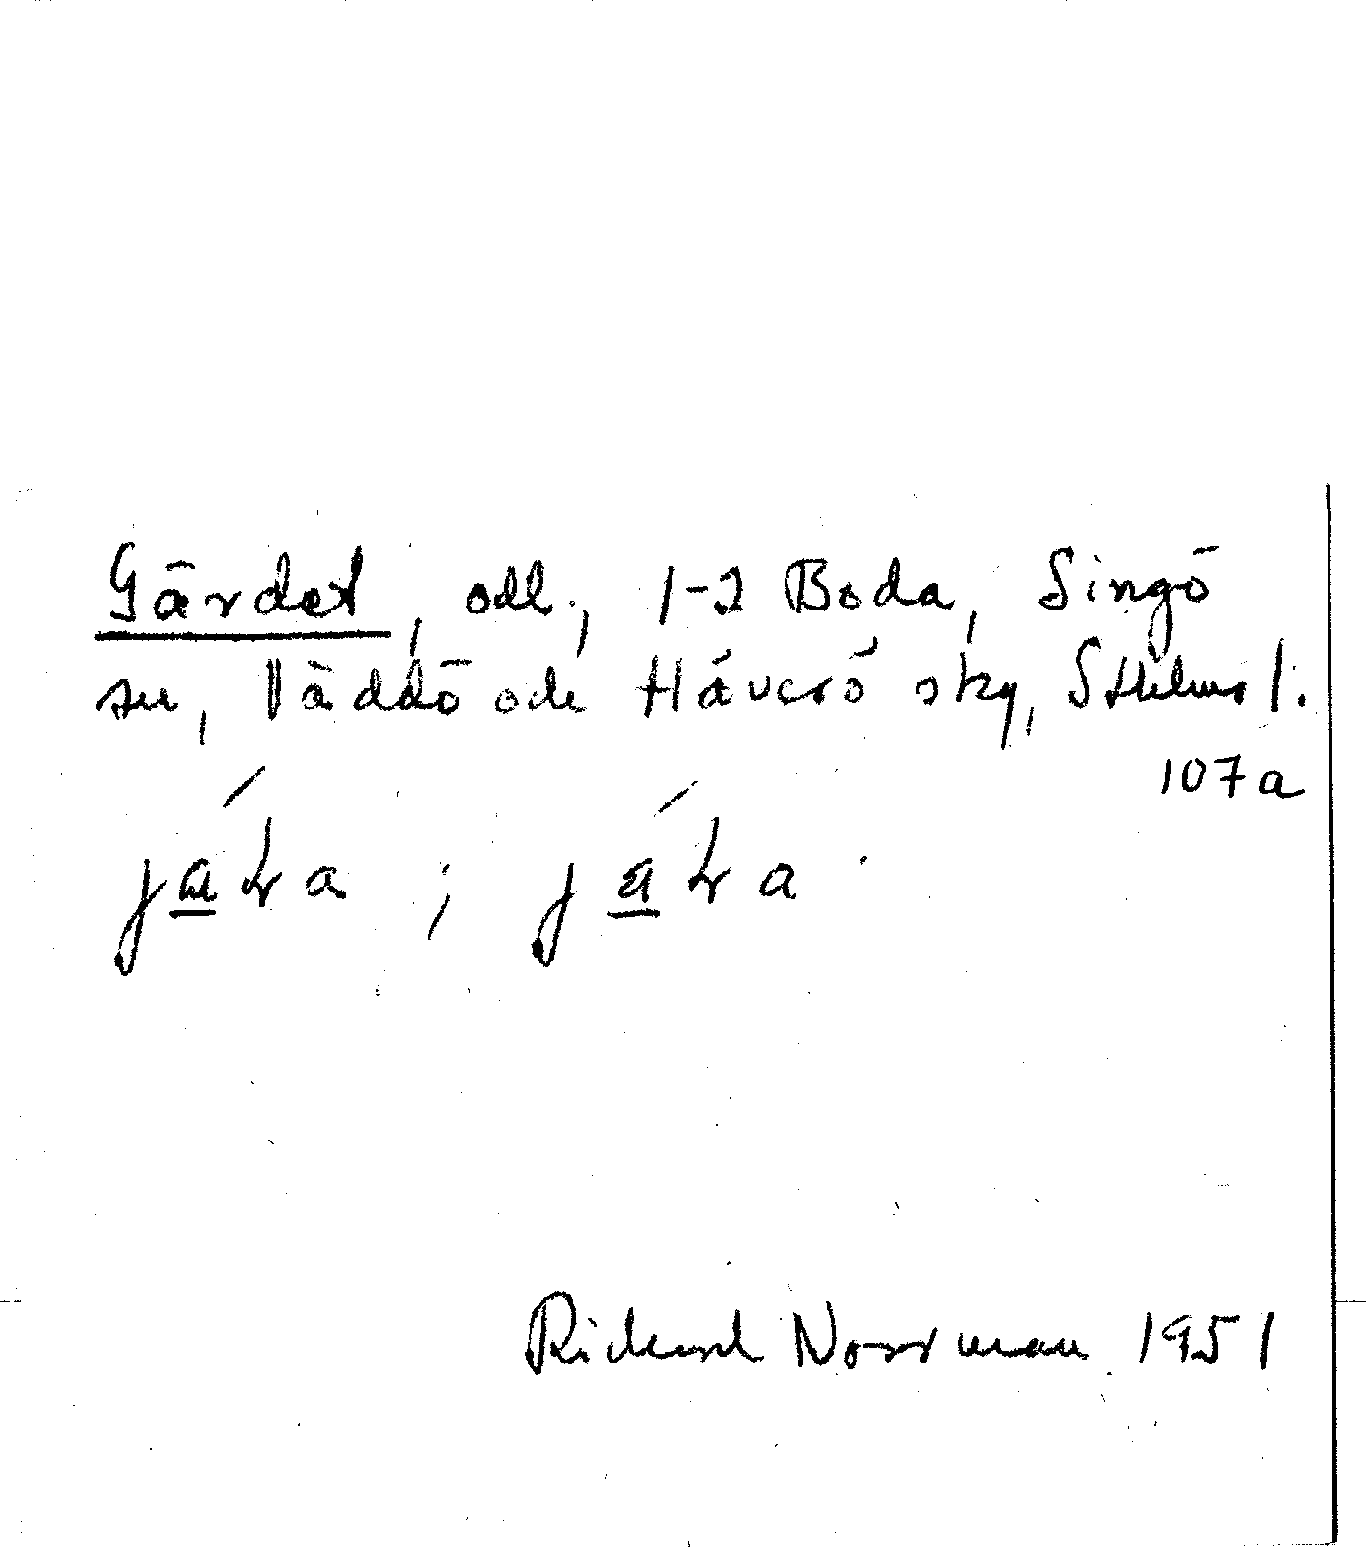 Gärdet, odl., 1-2 Boda, Singö
sn, Väddö och Häverö sky, Sthlms l.
107a
Rickard Norrman 1951